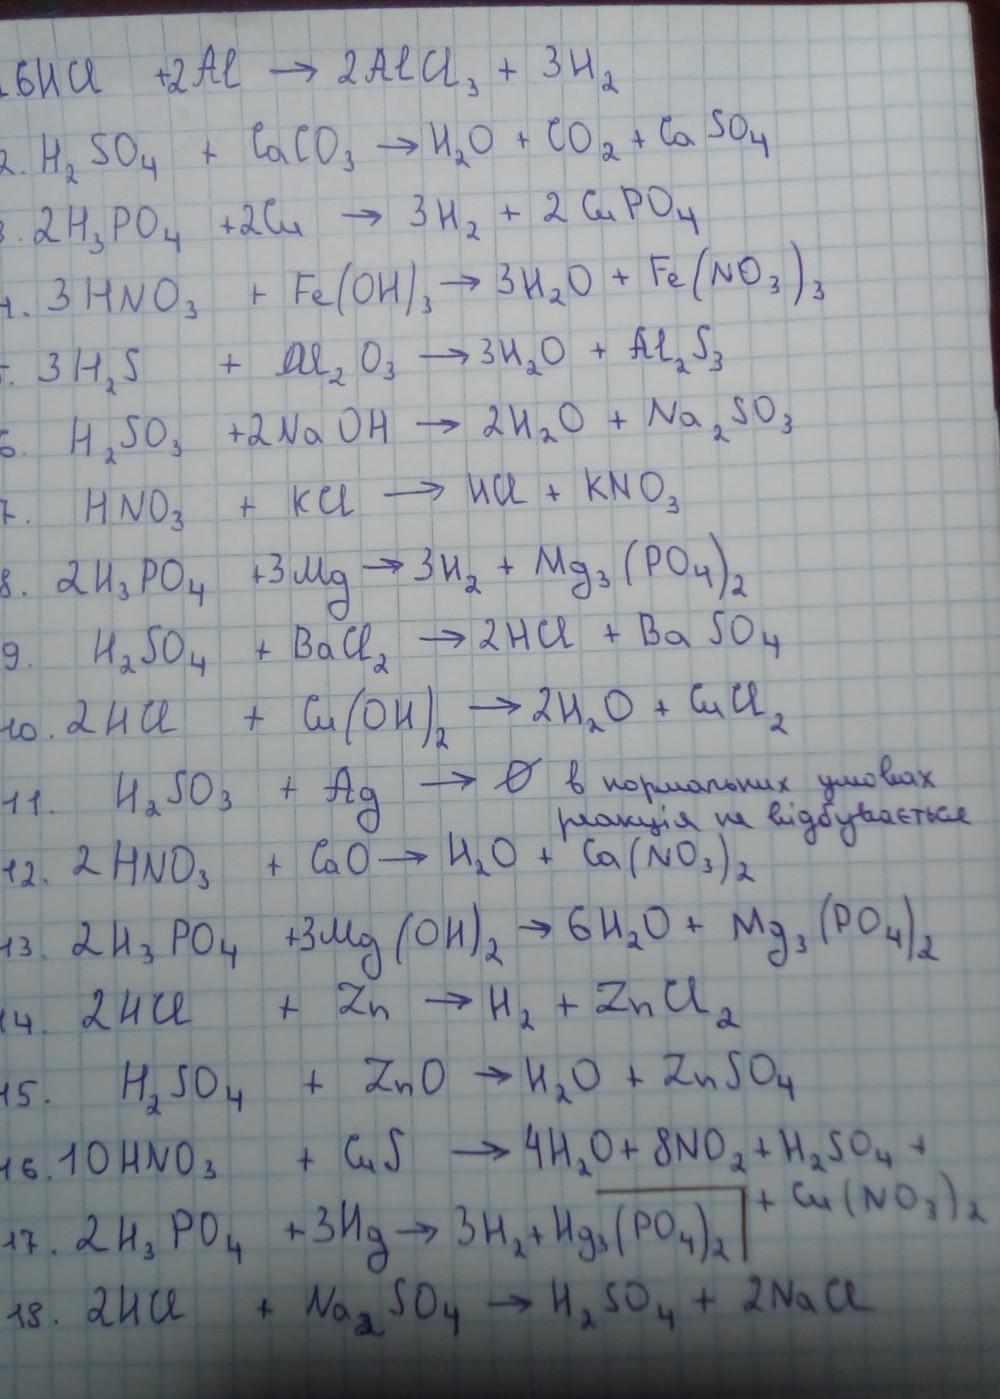 1. 6HCl + 2Al → 2AlCl₃ + 3H₂
2. H₂SO₄ + CaCO₃ → H₂O + CO₂ + CaSO₄
3. 2H₃PO₄ + 2Cu → 3H₂ + 2CuPO₄
4. 3HNO₃ + Fe(OH)₃ → 3H₂O + Fe(NO₃)₃
5. 3H₂S + Al₂O₃ → 3H₂O + Al₂S₃
6. H₂SO₃ + 2NaOH → 2H₂O + Na₂SO₃
7. HNO₃ + KCl → HCl + KNO₃
8. 2H₃PO₄ + 3Mg → 3H₂ + Mg₃(PO₄)₂
9. H₂SO₄ + BaCl₂ → 2HCl + BaSO₄
10. 2HCl + Cu(OH)₂ → 2H₂O + CuCl₂
11. H₂SO₃ + Ag → Ø в нормальних умовах
реакція не відбувається
12. 2HNO₃ + CaO → H₂O + Ca(NO₃)₂
13. 2H₃PO₄ + 3Mg(OH)₂ → 6H₂O + Mg₃(PO₄)₂
14. 2HCl + Zn → H₂ + ZnCl₂
15. H₂SO₄ + ZnO → H₂O + ZnSO₄
16. 10HNO₃ + CuS → 4H₂O + 8NO₂ + H₂SO₄ +
+ Cu(NO₃)₂
17. 2H₃PO₄ + 3Hg → 3H₂ + Hg₃(PO₄)₂
18. 2HCl + Na₂SO₄ → H₂SO₄ + 2NaCl